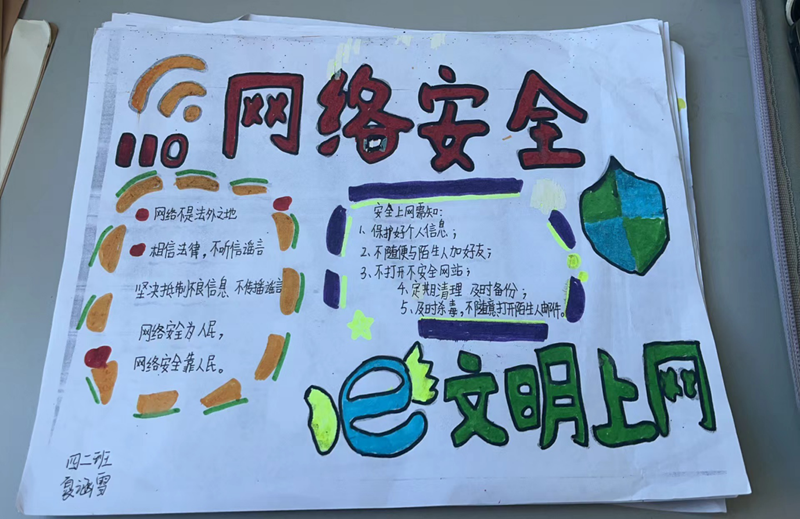 网络安全
110
网络不是法外之地
相信法律，不听信谣言
坚决抵制不良信息 不传播谣言
网络安全为人民，
网络安全靠人民。
安全上网需知：
1、保护好个人信息；
2、不随便与陌生人加好友；
3、不打开不安全网站；
4、定期清理 及时备份；
5、及时杀毒，不随意打开陌生人邮件。
e文明上网
四二班
夏涵雪